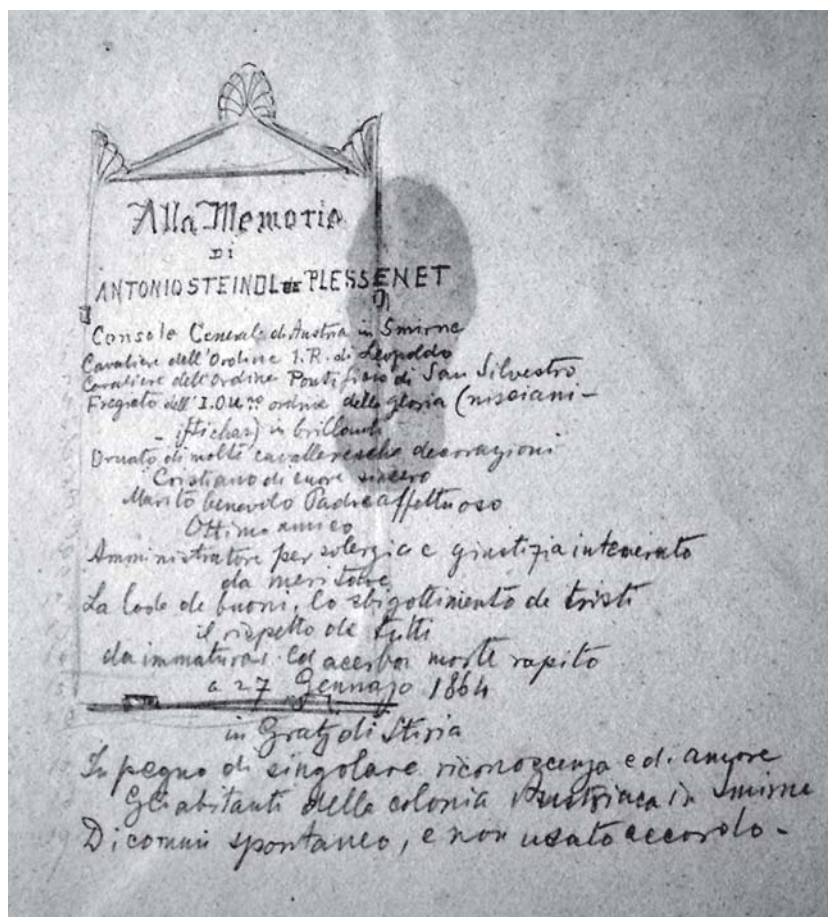 Alla Memoria
DI
ANTONIO STEINDL DE PLESSENET
Console Generale di Austria in Smirne
Cavaliere dell'Ordine I. R. di Leopoldo
Cavaliere dell'Ordine Pontificio di San Silvestro
Fregiato dell' I. ordine della gloria (nisciani-
- iftichar) in brillanti
Ornato di molte cavalleresche decorazioni
Cristiano di cuore sincero
Marito benevolo Padre affettuoso
Ottimo amico
Amministratore per solerzia e giustizia intemerato
da meritare
La lode de buoni, lo sbigottimento de tristi
il rispetto de tutti
da immatura ed acerba morte rapito
a 27 Gennajo 1864
in Gratz di Stiria
In pegno di singolare riconoscenza e di amore
Gli abitanti della colonia Austriaca in Smirne
Di comun spontaneo, e non usato accordo -